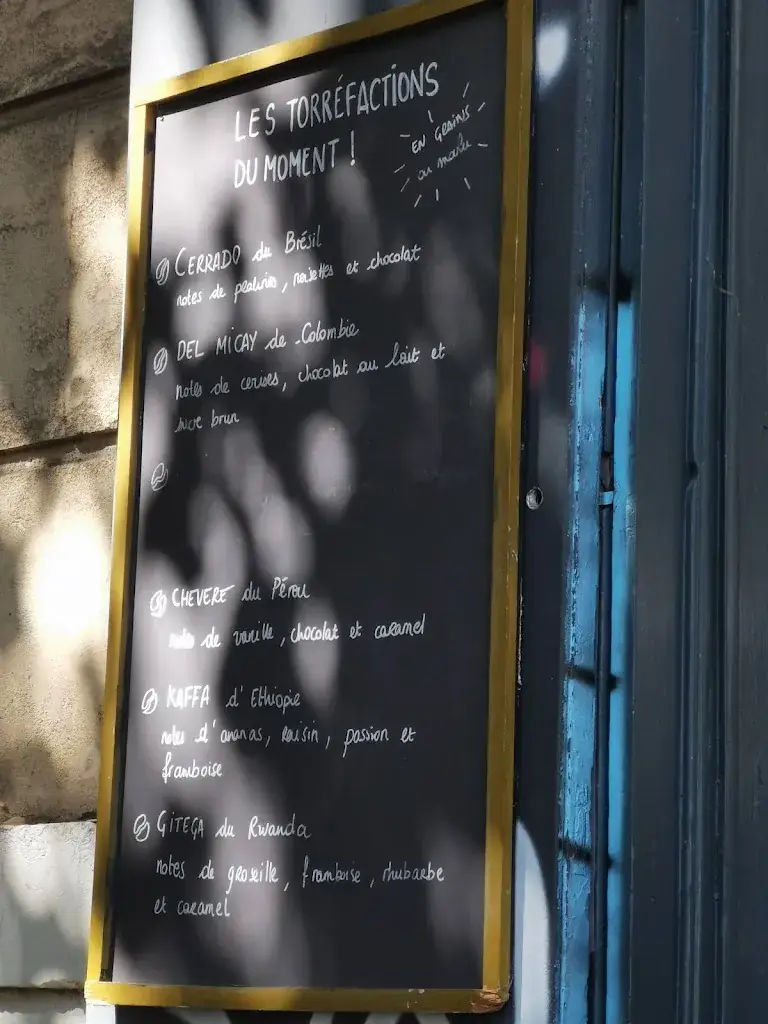 LES TORRÉFACTIONS
DU MOMENT !
EN GRAINS
ou moulu
CERRADO du Brésil
notes de pralines, noisettes et chocolat
DEL MICAY de Colombie
notes de cerises, chocolat au lait et
sucre brun
CHEVERE du Pérou
notes de vanille, chocolat et caramel
KAFFA d'Ethiopie
notes d'ananas, raisin, passion et
framboise
GITEGA du Rwanda
notes de groseille, framboise, rhubarbe
et caramel